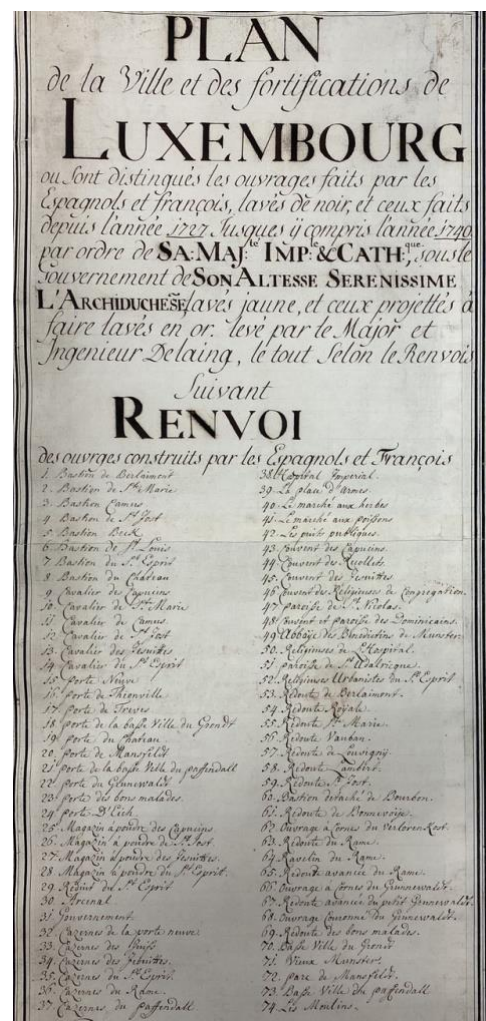 PLAN
de la Ville et des fortifications de
LUXEMBOURG
ou sont distingués les ouvrages faits par les
Espagnols et françois, lavés de noir, et ceux faits
depuis l'année 1727. Jusques ÿ compris l'année 1740
par ordre de SA: MAJ:té IMP:le & CATH:que, sous le
Gouvernement de SON ALTESSE SERENISSIME
L'ARCHIDUCHESSE lavés jaune, et ceux projettés à
faire lavés en or. levé par le Major et
Ingenieur Delaing, le tout Selon le Renvois
Suivant
RENVOI
des ouvrges construits par les Espagnols et François
1. Bastion de Berlaimont
2. Bastion de Ste Marie
3. Bastion Camus
4 Bastion de St Jost
5 Bastion Beck
6 Bastion de St Louis
7 Bastion du St Esprit
8 Bastion du Chateau
9 Cavalier des Capucins
10. Cavalier de Ste Marie
11. Cavalier de Camus
12 Cavalier de St Jost
13 Cavalier des Jesuittes
14 Cavalier du St Esprit
15 Porte Neuve
16 Porte de Thionville
17 Porte de Treves
18 porte de la basse Ville du Grondt
19 porte du Chateau
20. porte de Mansfeldt
21 porte de la basse Ville du paffendall
22 porte du Grunewaldt
23 porte des bons malades.
24 porte D'Eich
25 Magazin à poudre des Capucins
26 Magazin à poudre de St Jost
27 Magazin à poudre des Jesuittes.
28 Magazin à poudre du St Esprit.
29 Reduit du St Esprit
30 Arcenal
31 Gouvernement
32 Cazernes de la porte neuve
33 Cazernes des
34 Cazernes des Jesuittes.
35 Cazernes du St Esprit.
36 Cazernes du Rame
37 Cazernes du paffendall
38 Hôpital Imperial.
39. La place d'Armes.
40. Le marché aux herbes
41. Le marché aux poissons
42. Les puits publiques.
43 Couvent des Capucins.
44 Couvent des Recollets.
45 Couvent des Jesuittes
46 Couvent des Religieuses de Congregation.
47 paroisse de St Nicolas.
48 Couvent et paroisse des Dominicains.
49 Abbaÿe des Benedictins de Munster
50. Religieuses de L'hospital.
51 paroisse de St Udalricque.
52 Religieuses Urbanistes du St Esprit
53 Redoute de Berlaimont.
54 Redoute Royale.
55 Redoute Ste Marie.
56 Redoute Vauban.
57 Redoute de Louvigny
58. Redoute Lambert.
59 Redoute St Jost.
60 Bastion detaché de Bourbon.
61. Redoute de Bonnevoije.
62 Ouvrage à Cornes du Verloren Kost.
63 Redoute du Rame.
64 Ravelin du Rame.
65 Redoute avancée du Rame.
66 Ouvrage à Cornes du Grunnewaldt.
67 Redoute avancée du petit Grunnewaldt.
68 Ouvrage Couronné du Grunnewaldt.
69 Redoute des bons malades.
70. Basse Ville du Grondt
71. Vieux Munster.
72. parc de Mansfeld.
73 Basse Ville du paffendall
74. Les Moulins.